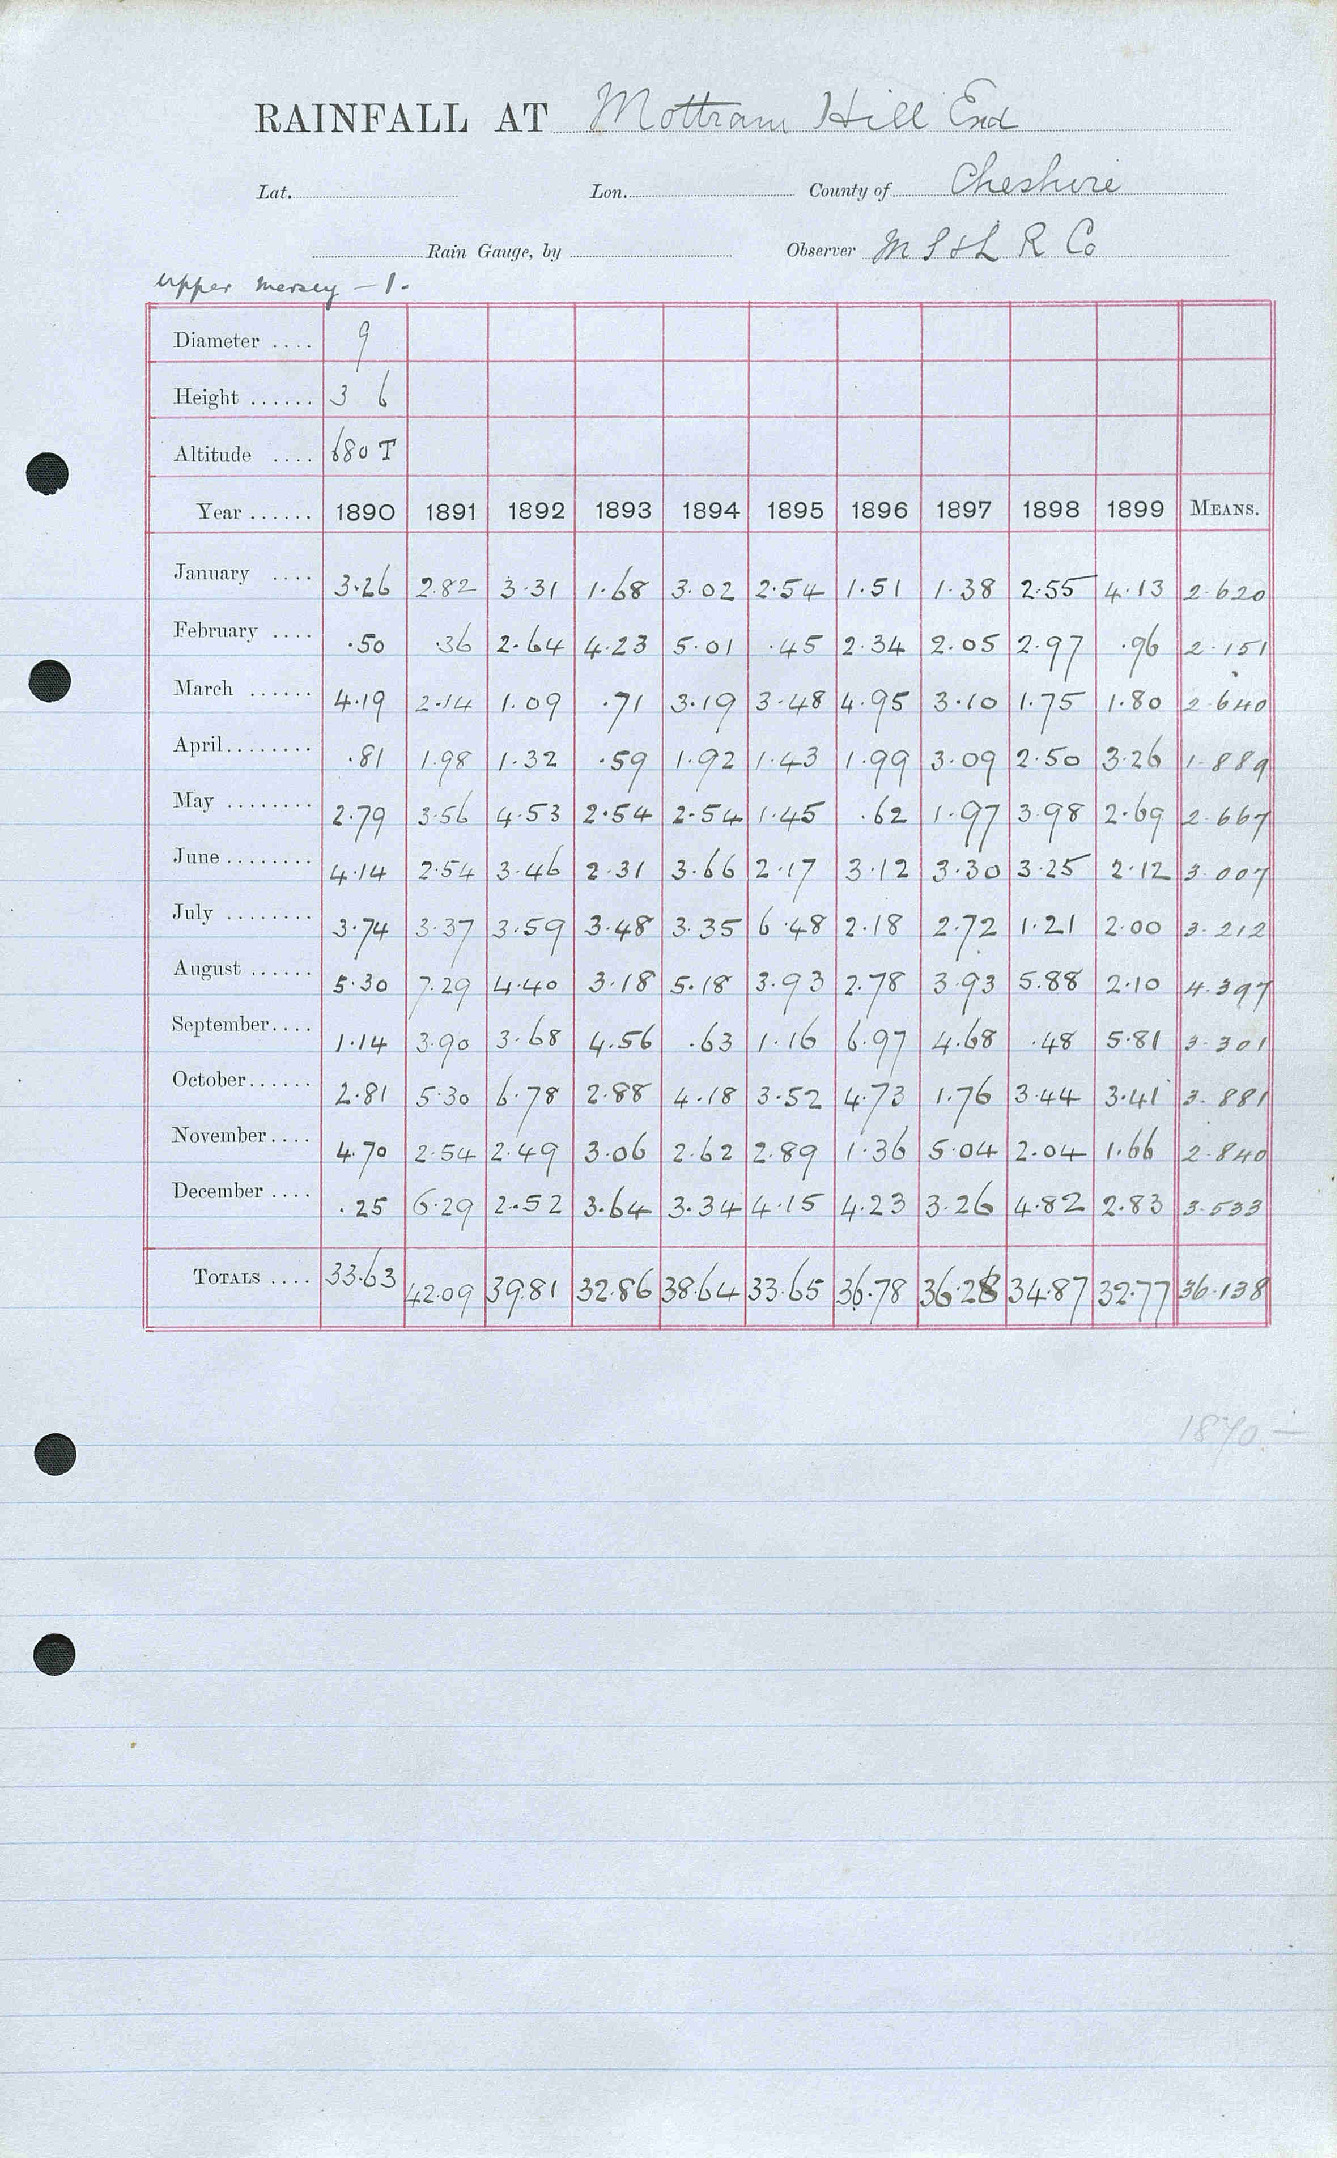 RAINFALL AT Mottram Hill End
Lat. Lon. County of Cheshire
Rain Gauge, by Observer M S & L R Co
Upper Mersey - 1.
Diameter .... 9
Height ...... 3 6
Altitude .... 680 T
Year ...... 1890 1891 1892 1893 1894 1895 1896 1897 1898 1899 MEANS.
January .... 3.26 2.82 3.31 1.68 3.02 2.54 1.51 1.38 2.55 4.13 2.620
February .... .50 .36 2.64 4.23 5.01 .45 2.34 2.05 2.97 .96 2.151
March ...... 4.19 2.14 1.09 .71 3.19 3.48 4.95 3.10 1.75 1.80 2.640
April........ .81 1.98 1.32 .59 1.92 1.43 1.99 3.09 2.50 3.26 1.889
May ........ 2.79 3.56 4.53 2.54 2.54 1.45 .62 1.97 3.98 2.69 2.667
June........ 4.14 2.54 3.46 2.31 3.66 2.17 3.12 3.30 3.25 2.12 3.007
July ........ 3.74 3.37 3.59 3.48 3.35 6.48 2.18 2.72 1.21 2.00 3.212
August ...... 5.30 7.29 4.40 3.18 5.18 3.93 2.78 3.93 5.88 2.10 4.397
September.... 1.14 3.90 3.68 4.56 .63 1.16 6.97 4.68 .48 5.81 3.301
October...... 2.81 5.30 6.78 2.88 4.18 3.52 4.73 1.76 3.44 3.41 3.881
November.... 4.70 2.54 2.49 3.06 2.62 2.89 1.36 5.04 2.04 1.66 2.840
December .... .25 6.29 2.52 3.64 3.34 4.15 4.23 3.26 4.82 2.83 3.533
TOTALS .... 33.63 42.09 39.81 32.86 38.64 33.65 36.78 36.28 34.87 32.77 36.138
1870.—